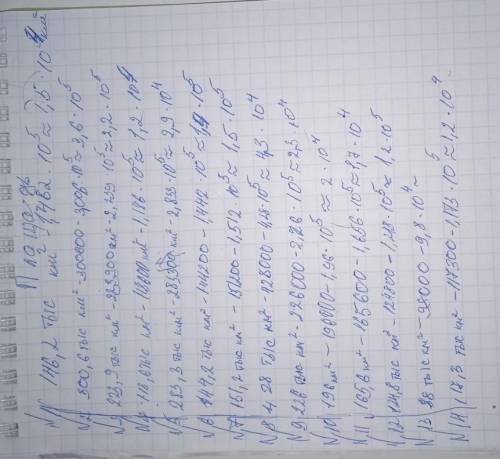 Площадь
N1 146,2 тыс км² - 1,462 · 10⁵ ≈ 1,5 · 10⁵ км²
N2 300,6 тыс км² - 300600 - 3,006 · 10⁵ ≈ 3,6 · 10⁵
N3 223,9 тыс км² - 223900 км² - 2,239 · 10⁵ ≈ 2,2 · 10⁵
N4 118,6 тыс км² - 118600 км² - 1,186 · 10⁵ ≈ 1,2 · 10⁴
N5 283,3 тыс км² - 283300 км² - 2,833 · 10⁵ ≈ 2,9 · 10⁴
N6 144,2 тыс км² - 144200 - 1,442 · 10⁵ ≈ 1,4 · 10⁵
N7 151,2 тыс км² - 151200 - 1,512 · 10⁵ ≈ 1,5 · 10⁵
N8 4,28 тыс км² - 428000 - 4,28 · 10⁵ ≈ 4,3 · 10⁴
N9 226 тыс км² - 226000 - 2,26 · 10⁵ ≈ 2,3 · 10⁴
N10 196 км² - 196000 - 1,96 · 10⁵ ≈ 2 · 10⁴
N11 165,6 км² - 165600 - 1,656 · 10⁵ ≈ 1,7 · 10⁴
N12 124,8 тыс км² - 124800 - 1,248 · 10⁵ ≈ 1,2 · 10⁵
N13 98 тыс км² - 98000 - 9,8 · 10⁴ ≈
N14 117,3 тыс км² - 117300 - 1,173 · 10⁵ ≈ 1,2 · 10⁴